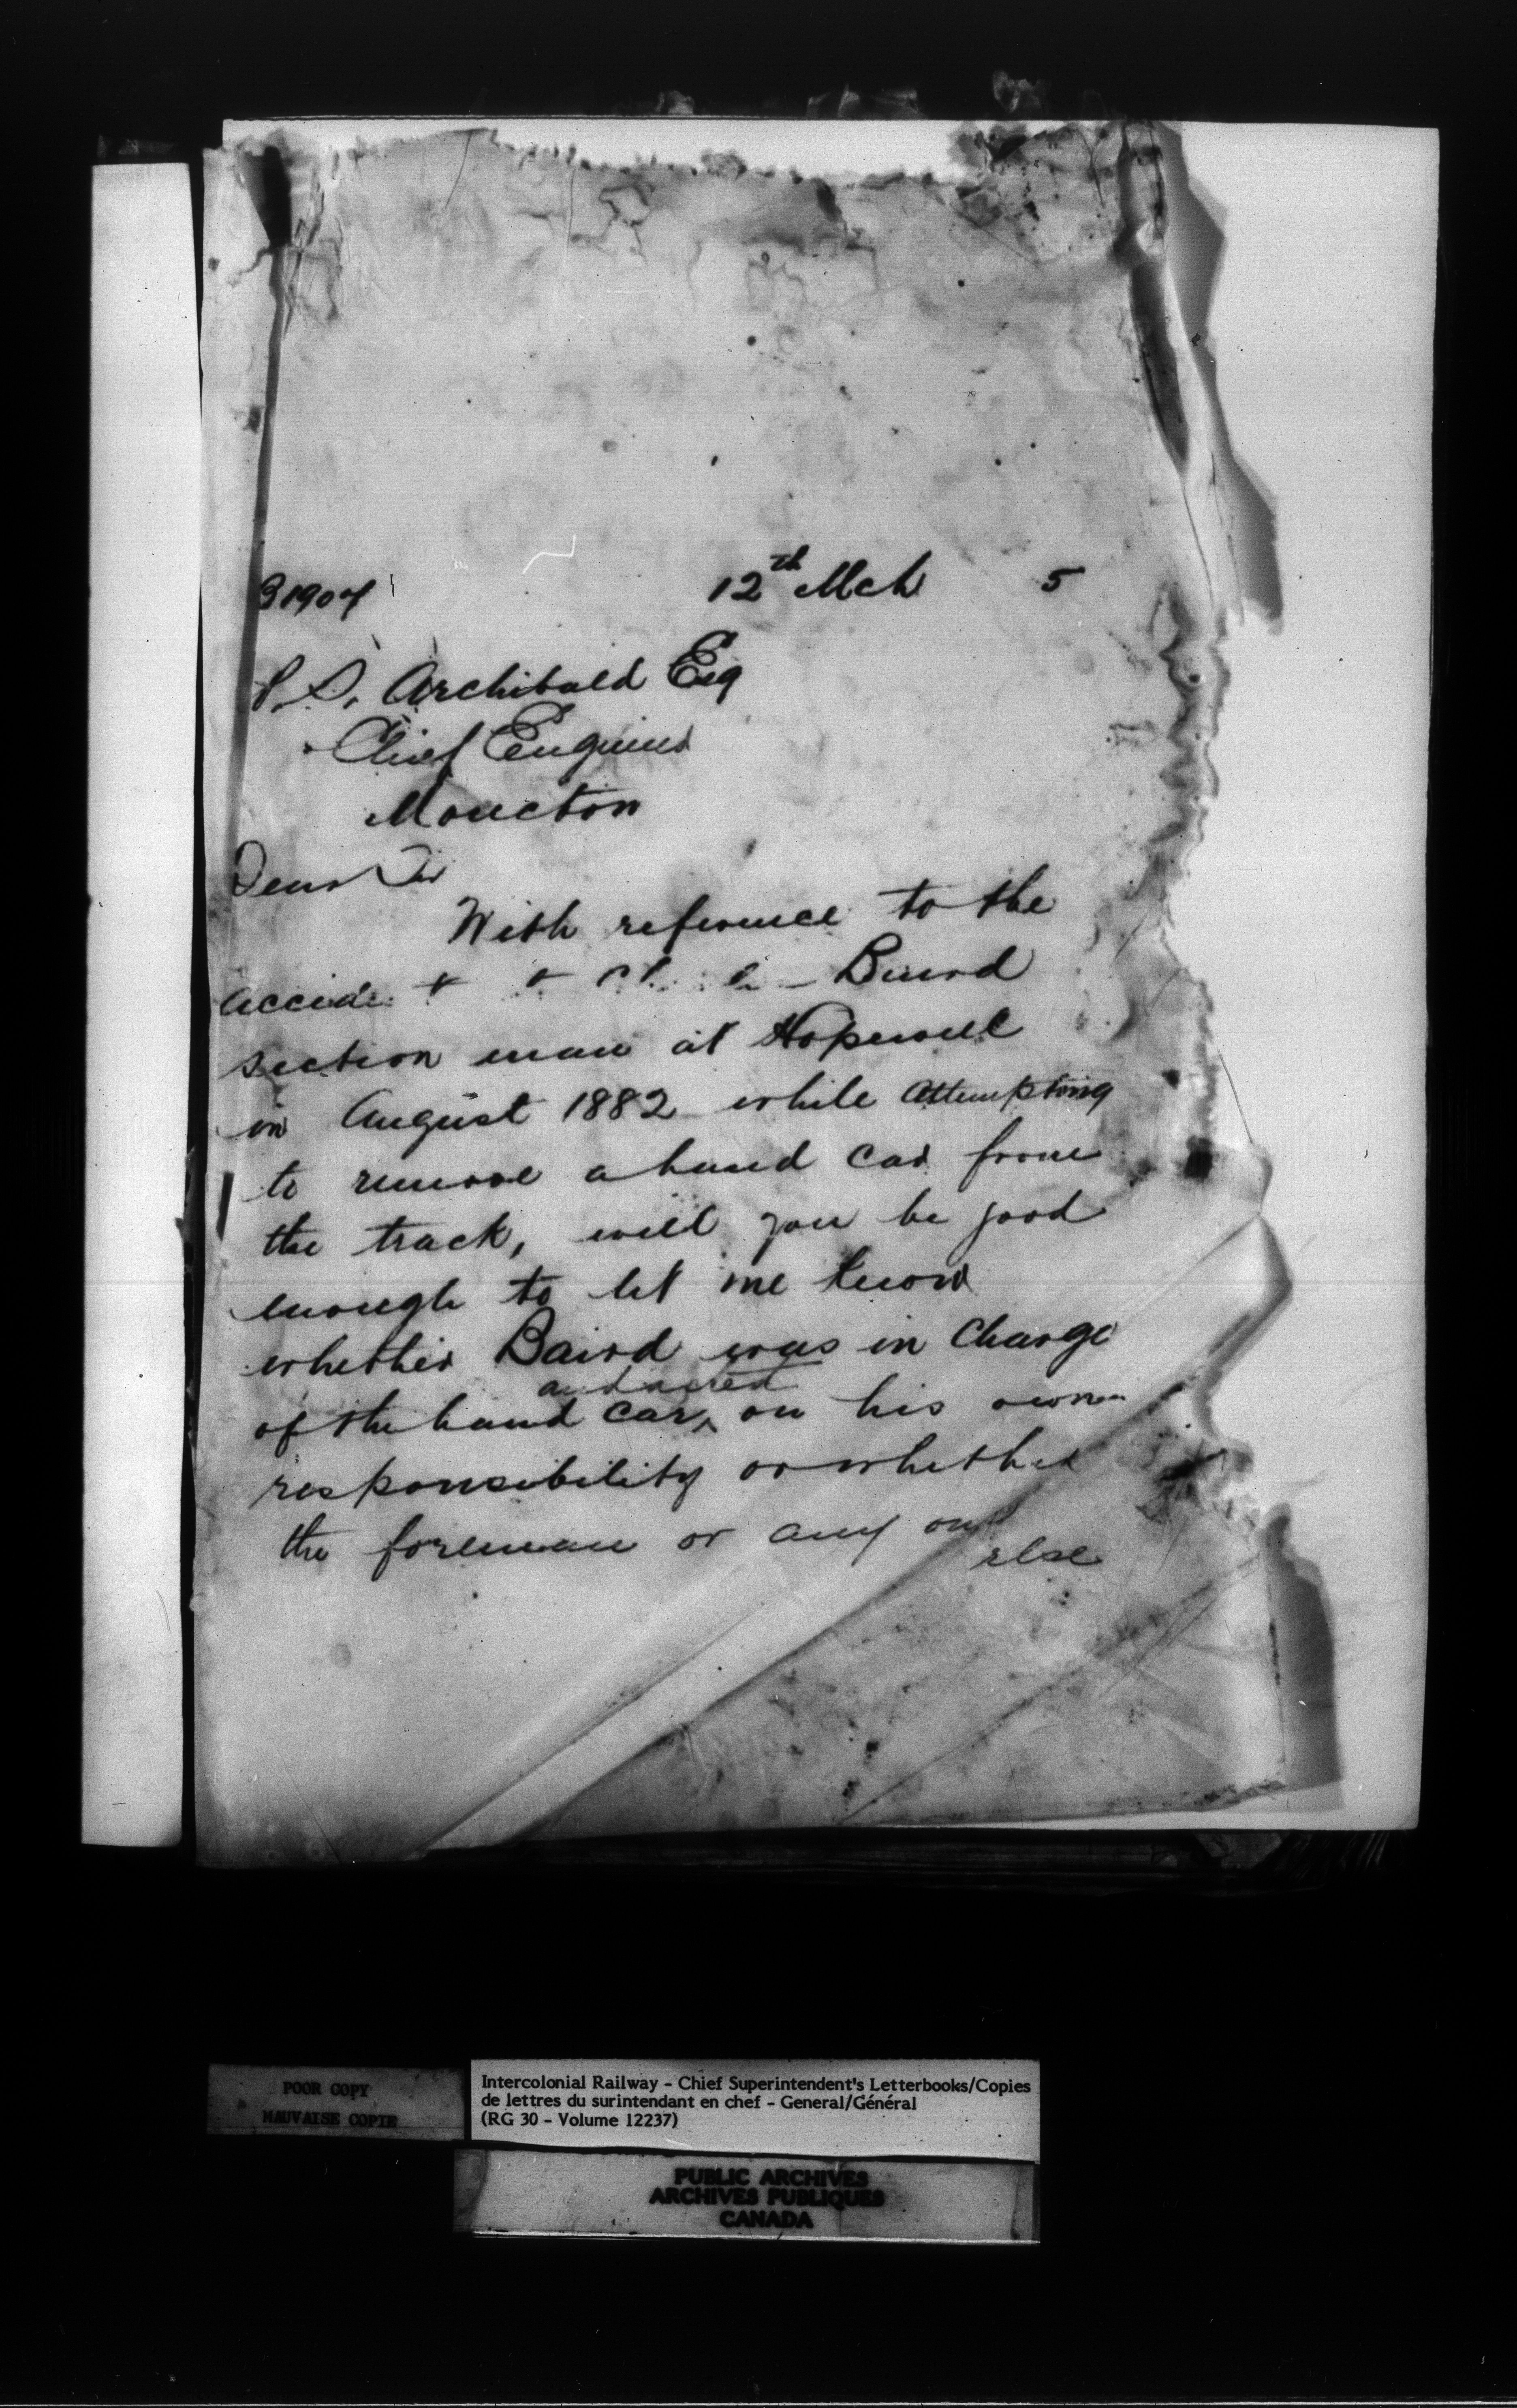 31904 12th Mch 5
P.S. Archibald Esq
Chief Engineer
Moncton
Dear Sir
With reference to the
accident Baird
section man at Hopewell
in August 1882 while attempting
to remove a hand car from
the track, will you be good
enough to let me know
whether Baird was in charge
and acted
of the hand car, on his own
responsibility or whether
the foreman or any one
else
POOR COPY
MAUVAISE COPIE
Intercolonial Railway - Chief Superintendent's Letterbooks/Copies
de lettres du surintendant en chef - General/Général
(RG 30 - Volume 12237)
PUBLIC ARCHIVES
ARCHIVES PUBLIQUES
CANADA